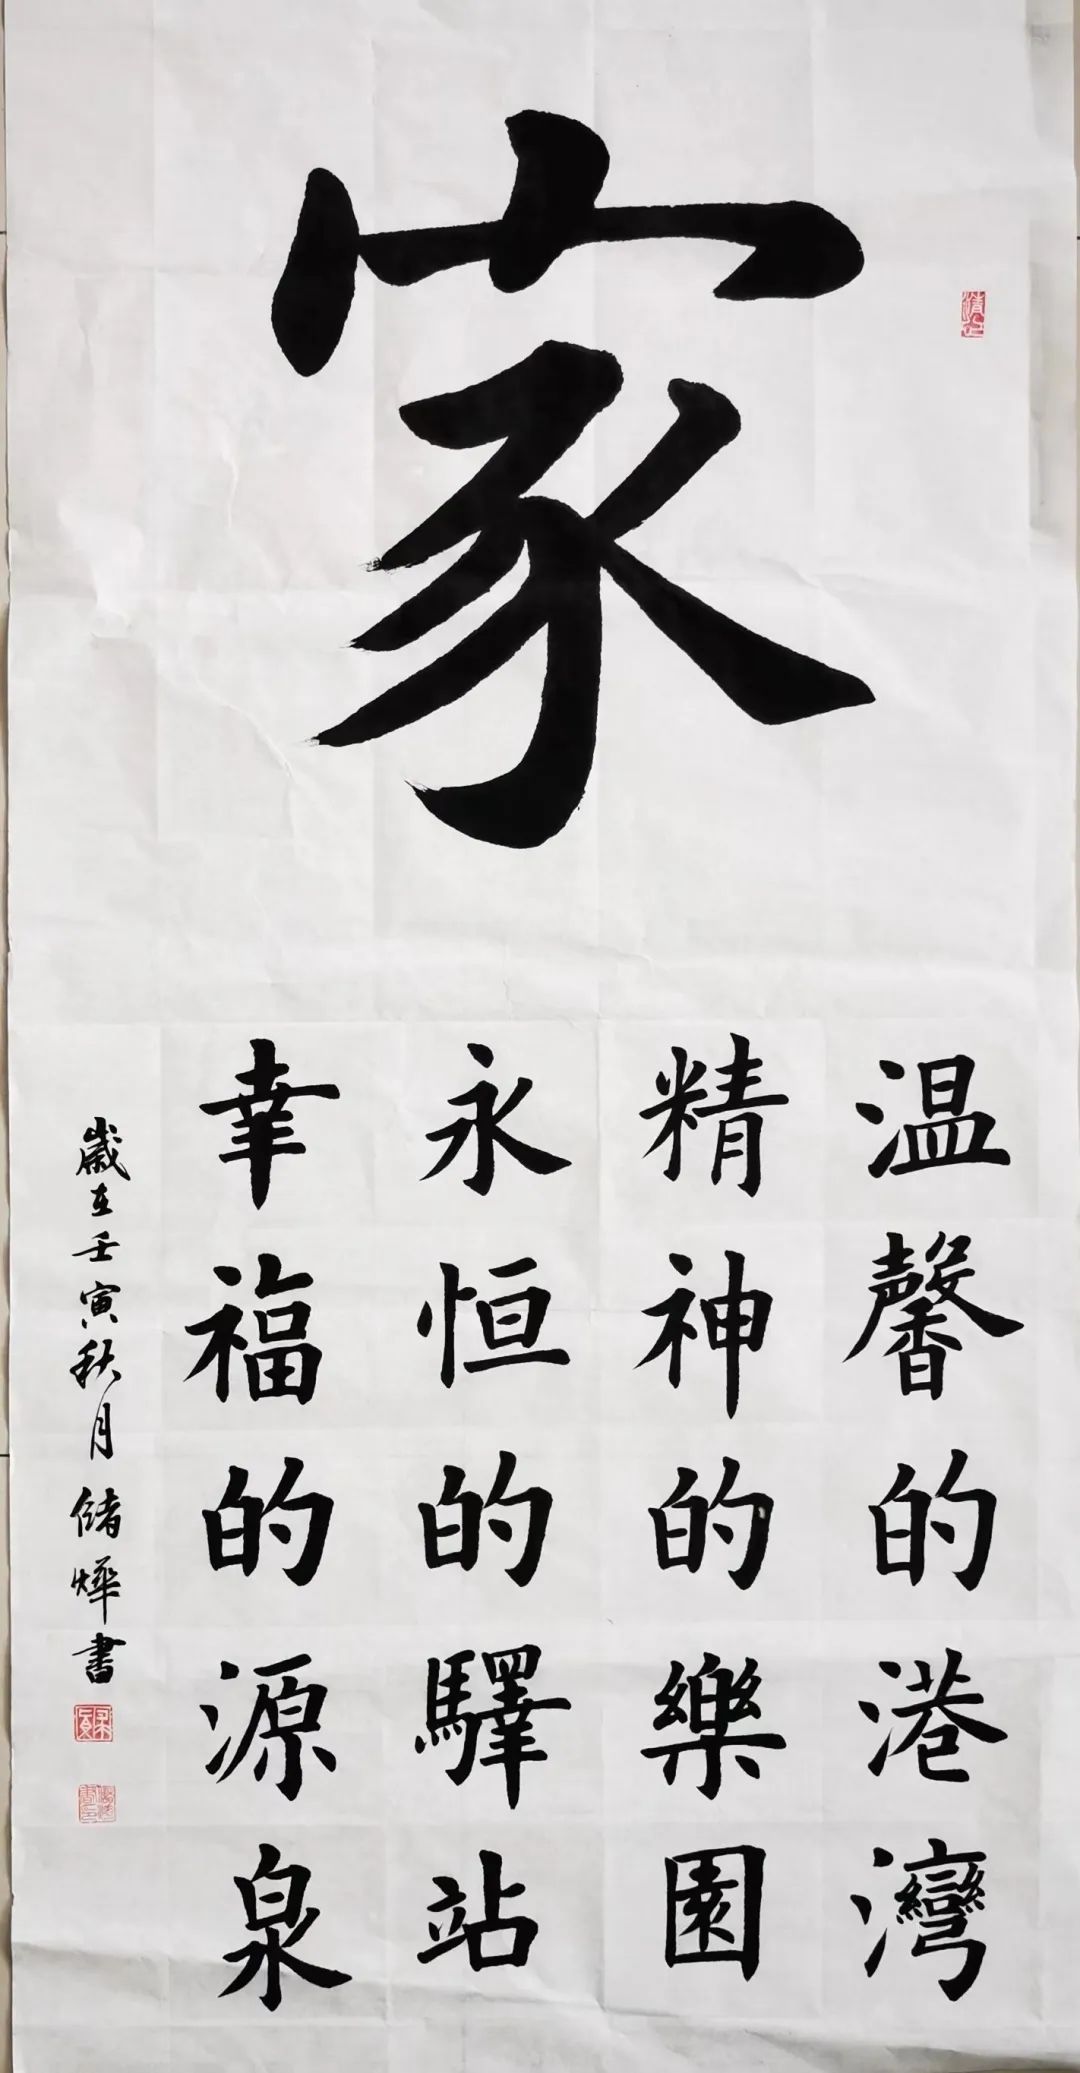 家
温馨的港灣
精神的樂園
永恒的驛站
幸福的源泉
歲在壬寅秋月儲燁書